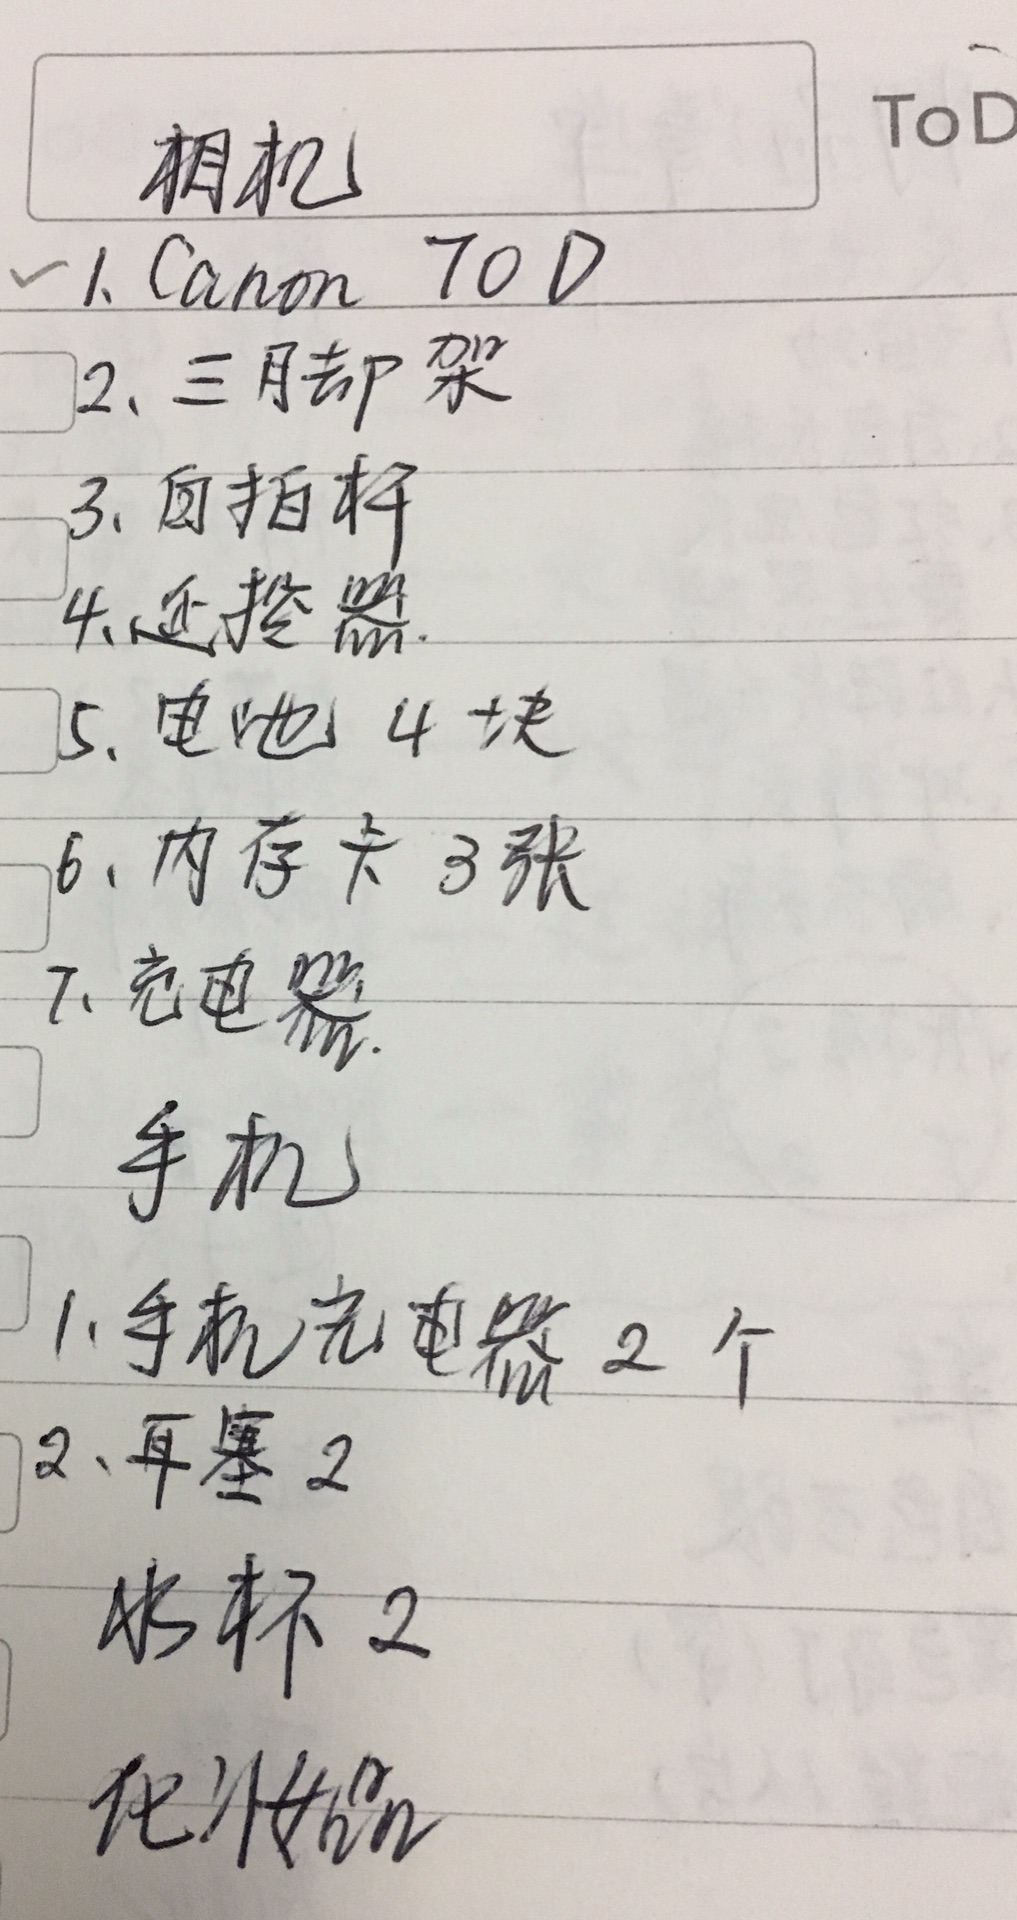 ToD
相机
✓1. Canon 70D
2、三脚架
3、自拍杆
4、遥控器.
5、电池 4块
6、内存卡 3张
7、充电器.
手机
1、手机充电器 2个
2、耳塞 2
水杯 2
化妆品